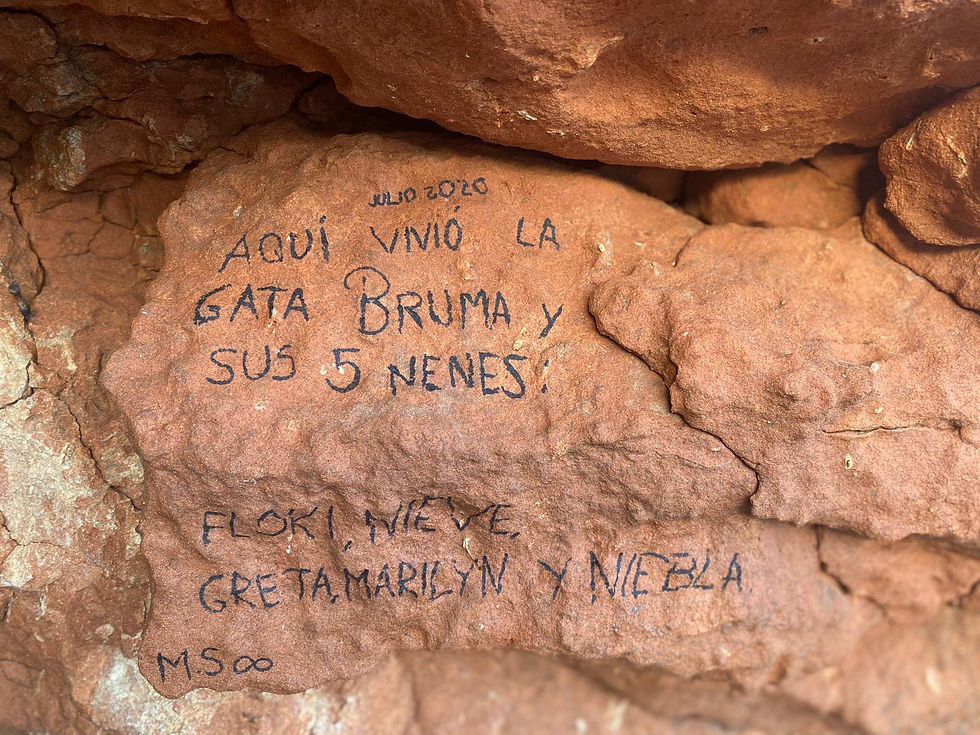 JULIO 2020
AQUÍ VIVIÓ LA
GATA BRUMA y
SUS 5 NENES:
FLOKI, NIEVE,
GRETA, MARILYN Y NIEBLA.
M.S ∞